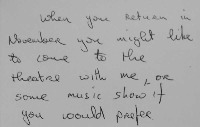 When you return in
November you might like
to come to the
theatre with me, or
some music show if
you would prefer